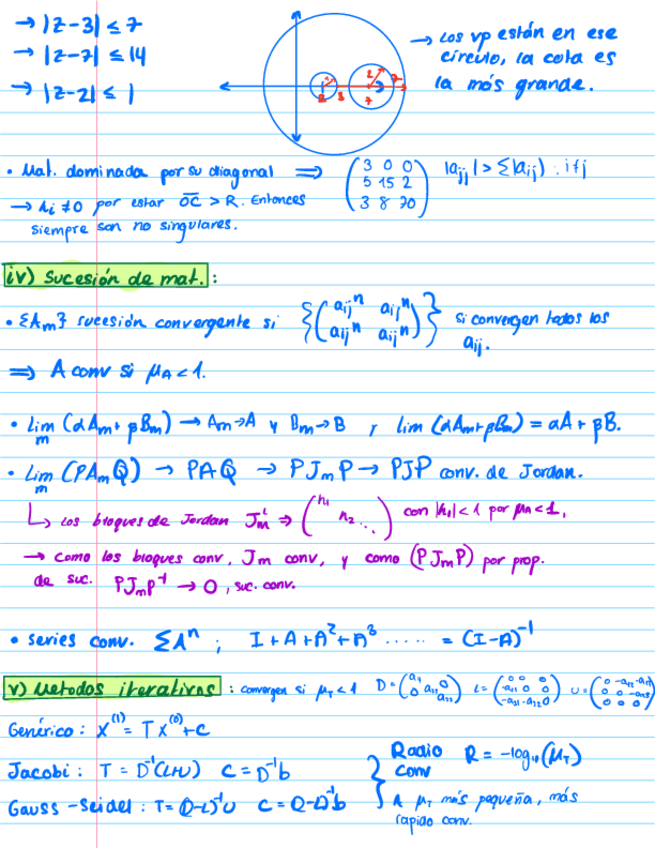 → |z-3| ≤ 7
→ |z-7| ≤ 14
→ |z-2| ≤ 1
→ Los vp están en ese
círculo, la cota es
la más grande.
• Mat. dominada por su diagonal ⟹ (3 0 0 |a_jj| > Σ|a_ij| : i≠j
5 15 2
3 8 20)
→ λi ≠ 0 por estar OC > R. Entonces
siempre son no singulares.
iv) Sucesión de mat.:
• {Am} sucesión convergente si {(a_ij^n a_ij^n
a_ij^n a_ij^n)} si convergen todos los
a_ij.
⟹ A conv si μ_A < 1.
• lim_m (αAm + βBm) → Am→A y Bm→B , lim (αAm+βBm) = αA + βB.
• lim_m (PAmQ) → PAQ → PJmP → PJP conv. de Jordan.
↳ Los bloques de Jordan J_m^i → (λ1 λ2 ...) con |λ1| < 1 por μ_A < 1,
→ como los bloques conv, Jm conv, y como (PJmP) por prop.
de suc. PJmP^-1 → 0, suc. conv.
• series conv. ΣA^n ; I + A + A^2 + A^3 ..... = (I-A)^-1
v) Metodos iterativos : convergen si μ_T < 1 D = L = U =
Genérico: X^(1) = T X^(0) + C
Jacobi: T = D^-1(L+U) C = D^-1 b
Gauss-Seidel: T = (D-L)^-1 U C = (D-L)^-1 b
Radio R = -log10(μ_T)
conv
A μ_T más pequeña, más
rapido conv.